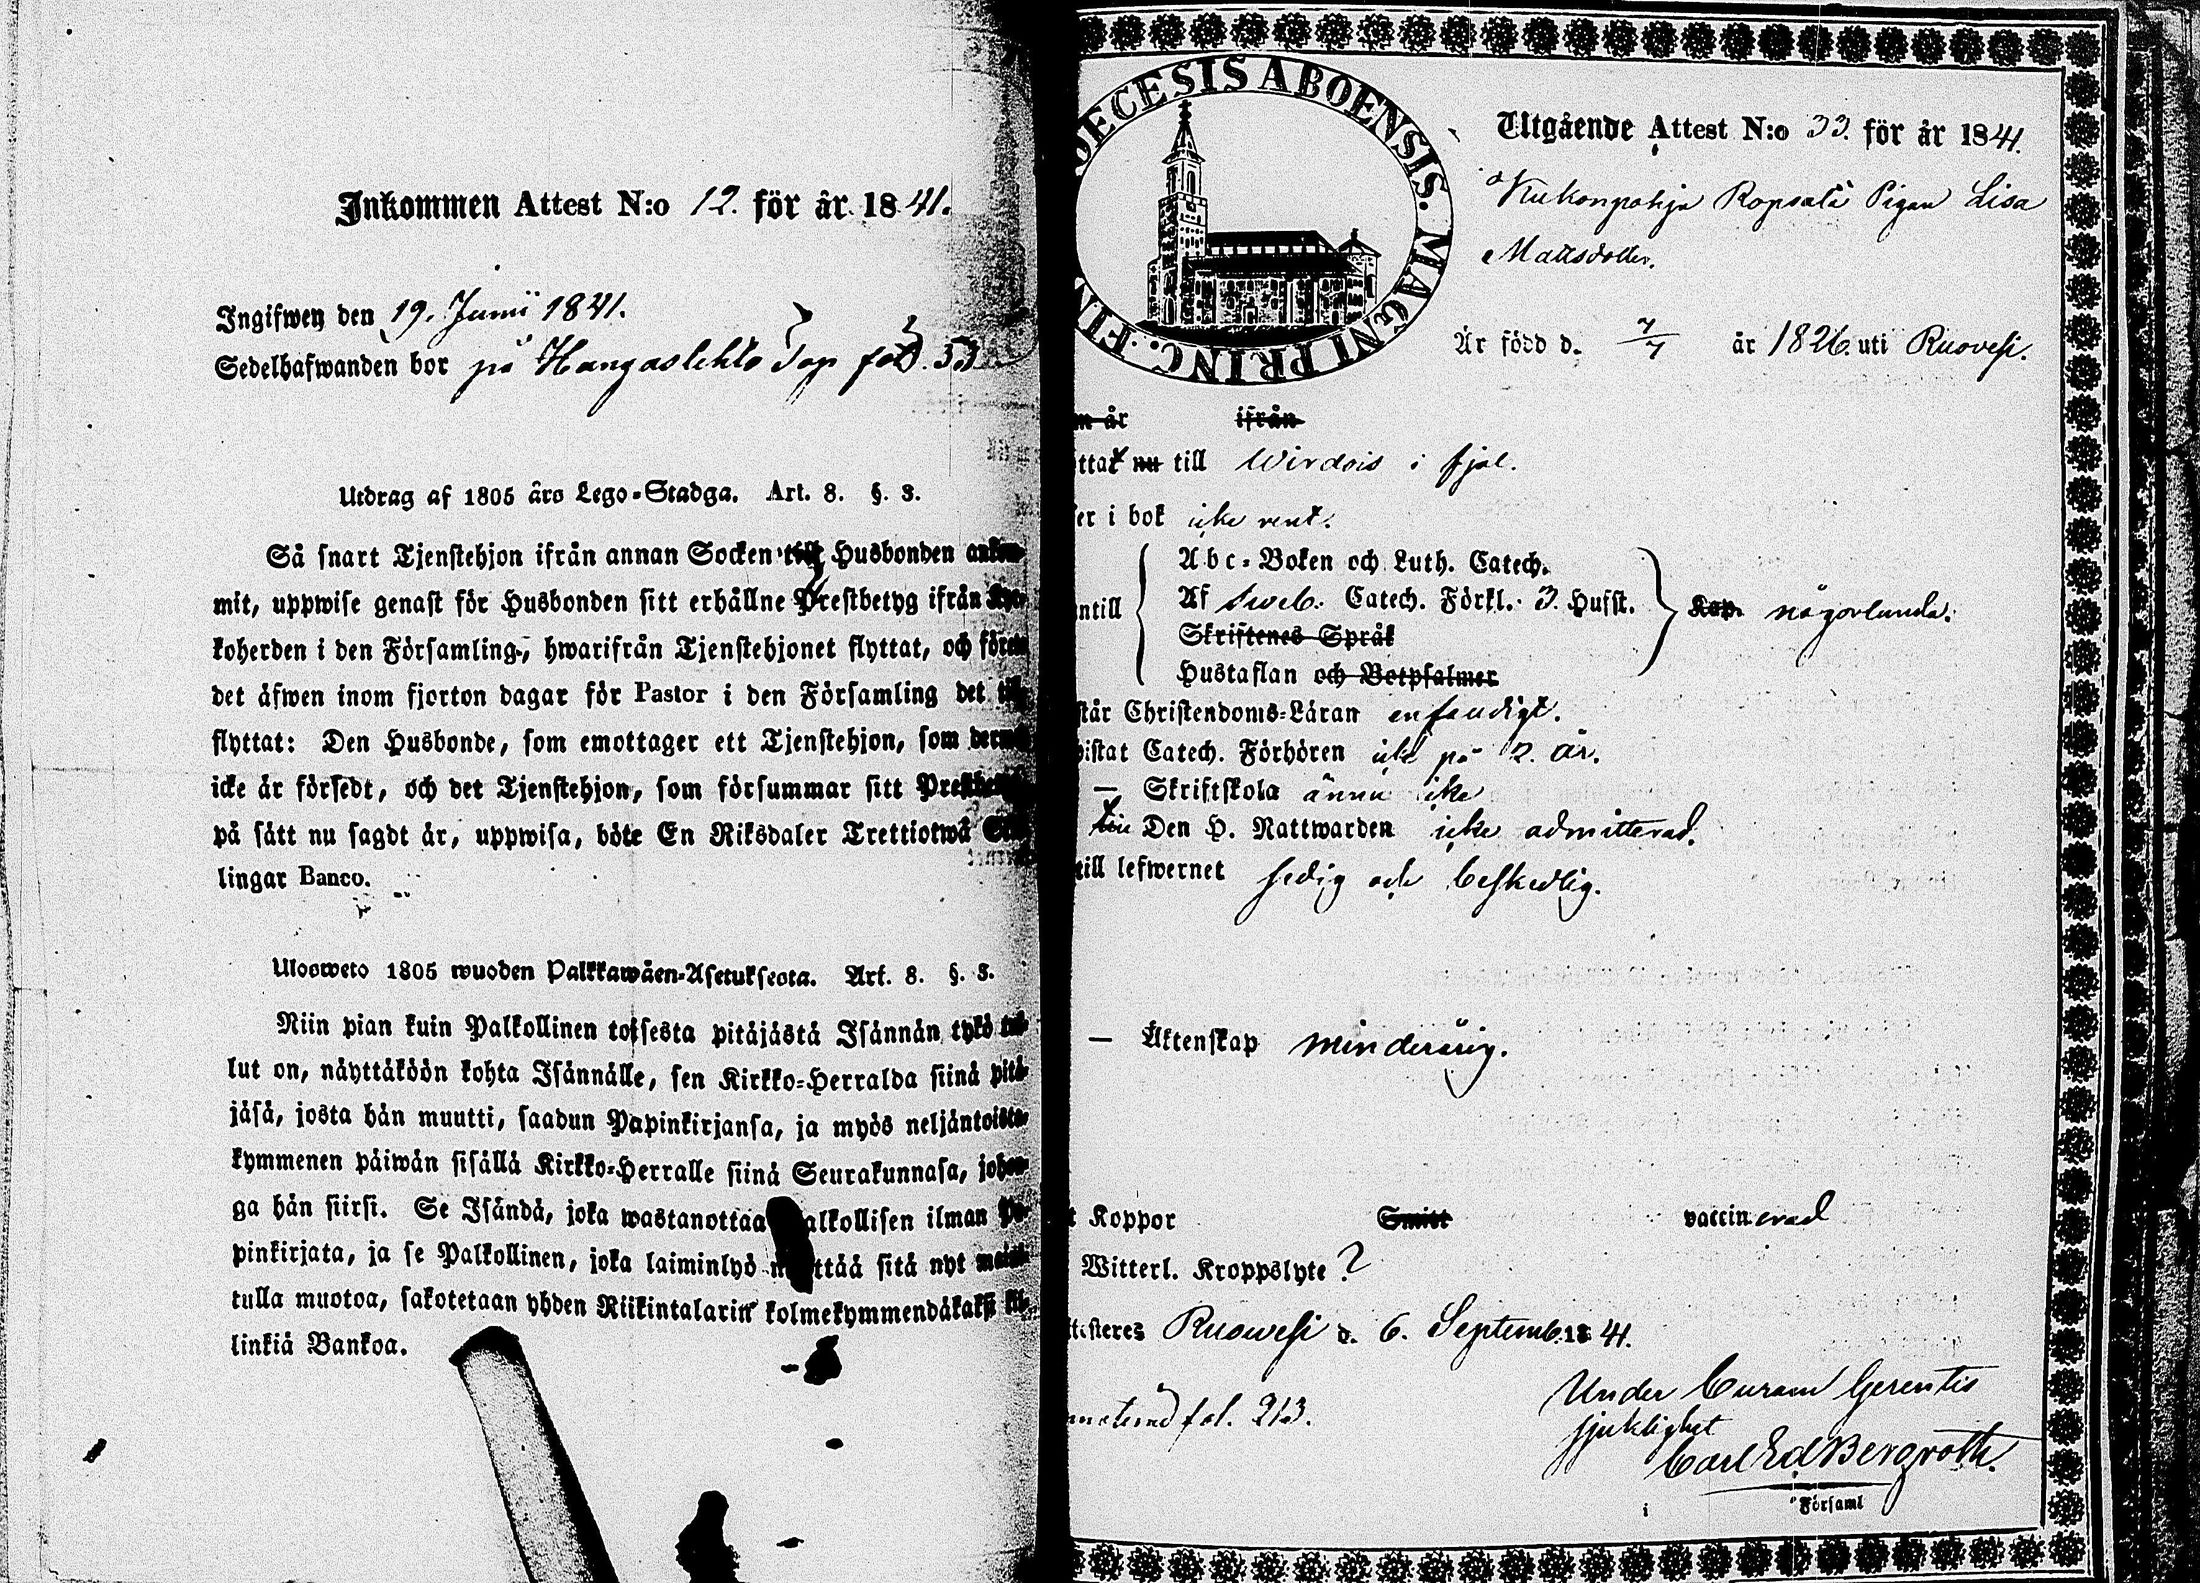 Inkommen Attest N:o 12. för år 1841.
Ingifwen den 19. Junii 1841.
Sedelhafwanden bor på Hangaslehto Torp fol. 53
Utdrag af 1805 års Lego-Stadga. Art. 8. §. 3.
Så snart Tjenstehjon ifrån annan Socken till Husbonden ankom-
mit, uppwise genast för Husbonden sitt erhållne Prestbetyg ifrån Kyr-
koherden i den Församling, hwarifrån Tjenstehjonet flyttat, och förete
det äfwen inom fjorton dagar för Pastor i den Församling det till
flyttat: Den Husbonde, som emottager ett Tjenstehjon, som dermed
icke är försedt, och det Tjenstehjon, som försummar sitt Prestbetyg
på sätt nu sagdt är, uppwisa, böte En Riksdaler Trettiotwå Skil-
lingar Banco.
Ulosweto 1805 wuoden Palkkawäen-Asetuksesta. Art. 8. §. 3.
Niin pian kuin Palkollinen toisesta pitäjästä Isännän tykö tul-
lut on, näyttäköön kohta Isännälle, sen Kirkko-Herralda siinä pitä-
jäsä, josta hän muutti, saadun Papinkirjansa, ja myös neljäntoista-
kymmenen päiwän sisällä Kirkko-Herralle siinä Seurakunnasa, johon-
ga hän siirsi. Se Isändä, joka wastanottaa Palkollisen ilman Pa-
pinkirjata, ja se Palkollinen, joka laiminlyö näyttää sitä nyt mainit-
tulla muotoa, sakotetaan yhden Riikintalarin kolmekymmendäkaksi kil-
linkiä Bankoa.
DECESIS ABOENSIS. MAGNI PRINC. FIN
Utgående Attest N:o 33. för år 1841.
Kukonpohja Ropsala Pigan Lisa
Mattsdotter.
Är född d. 7/7 år 1826. uti Ruovesi.
m år ifrån
ttat nu till Wirdois i fjol.
er i bok icke rent.
Abc-Boken och Luth. Catech.
ntill Af Sweb. Catech. Förkl. 3. Hufst. Kap. någorlunda.
Skriftenes Språk
Hustaflan och Botpsalmer
står Christendoms-Läran enfaldigt.
istat Catech. Förhören icke på 2. år.
— Skriftskola ännu icke
till Den H. Nattwarden icke admitterad.
till lefwernet sedig och beskedlig.
— Äktenskap minderårig.
t Koppor Smitt vaccinerad
Witterl. Kroppslyte ?
ttesteres Ruowesi d. 6. Septemb. 1841.
fol. 213.
Under Curam Gerentis
sjuklighet
Carl Ed Bergroth.
i Församl